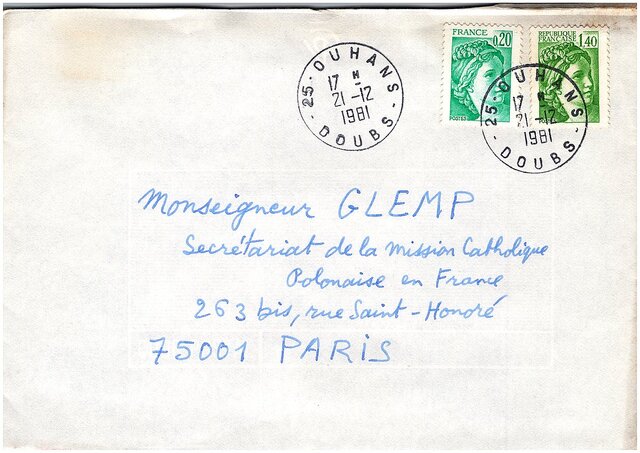 25 · OUHANS
17 H
21-12
1981
DOUBS
FRANCE
0,20
POSTES
REPUBLIQUE
FRANÇAISE
1,40
25 · OUHANS
17 H
21-12
1981
DOUBS
Monseigneur GLEMP
Secrétariat de la Mission Catholique
Polonaise en France
263 bis, rue Saint-Honoré
75001 PARIS